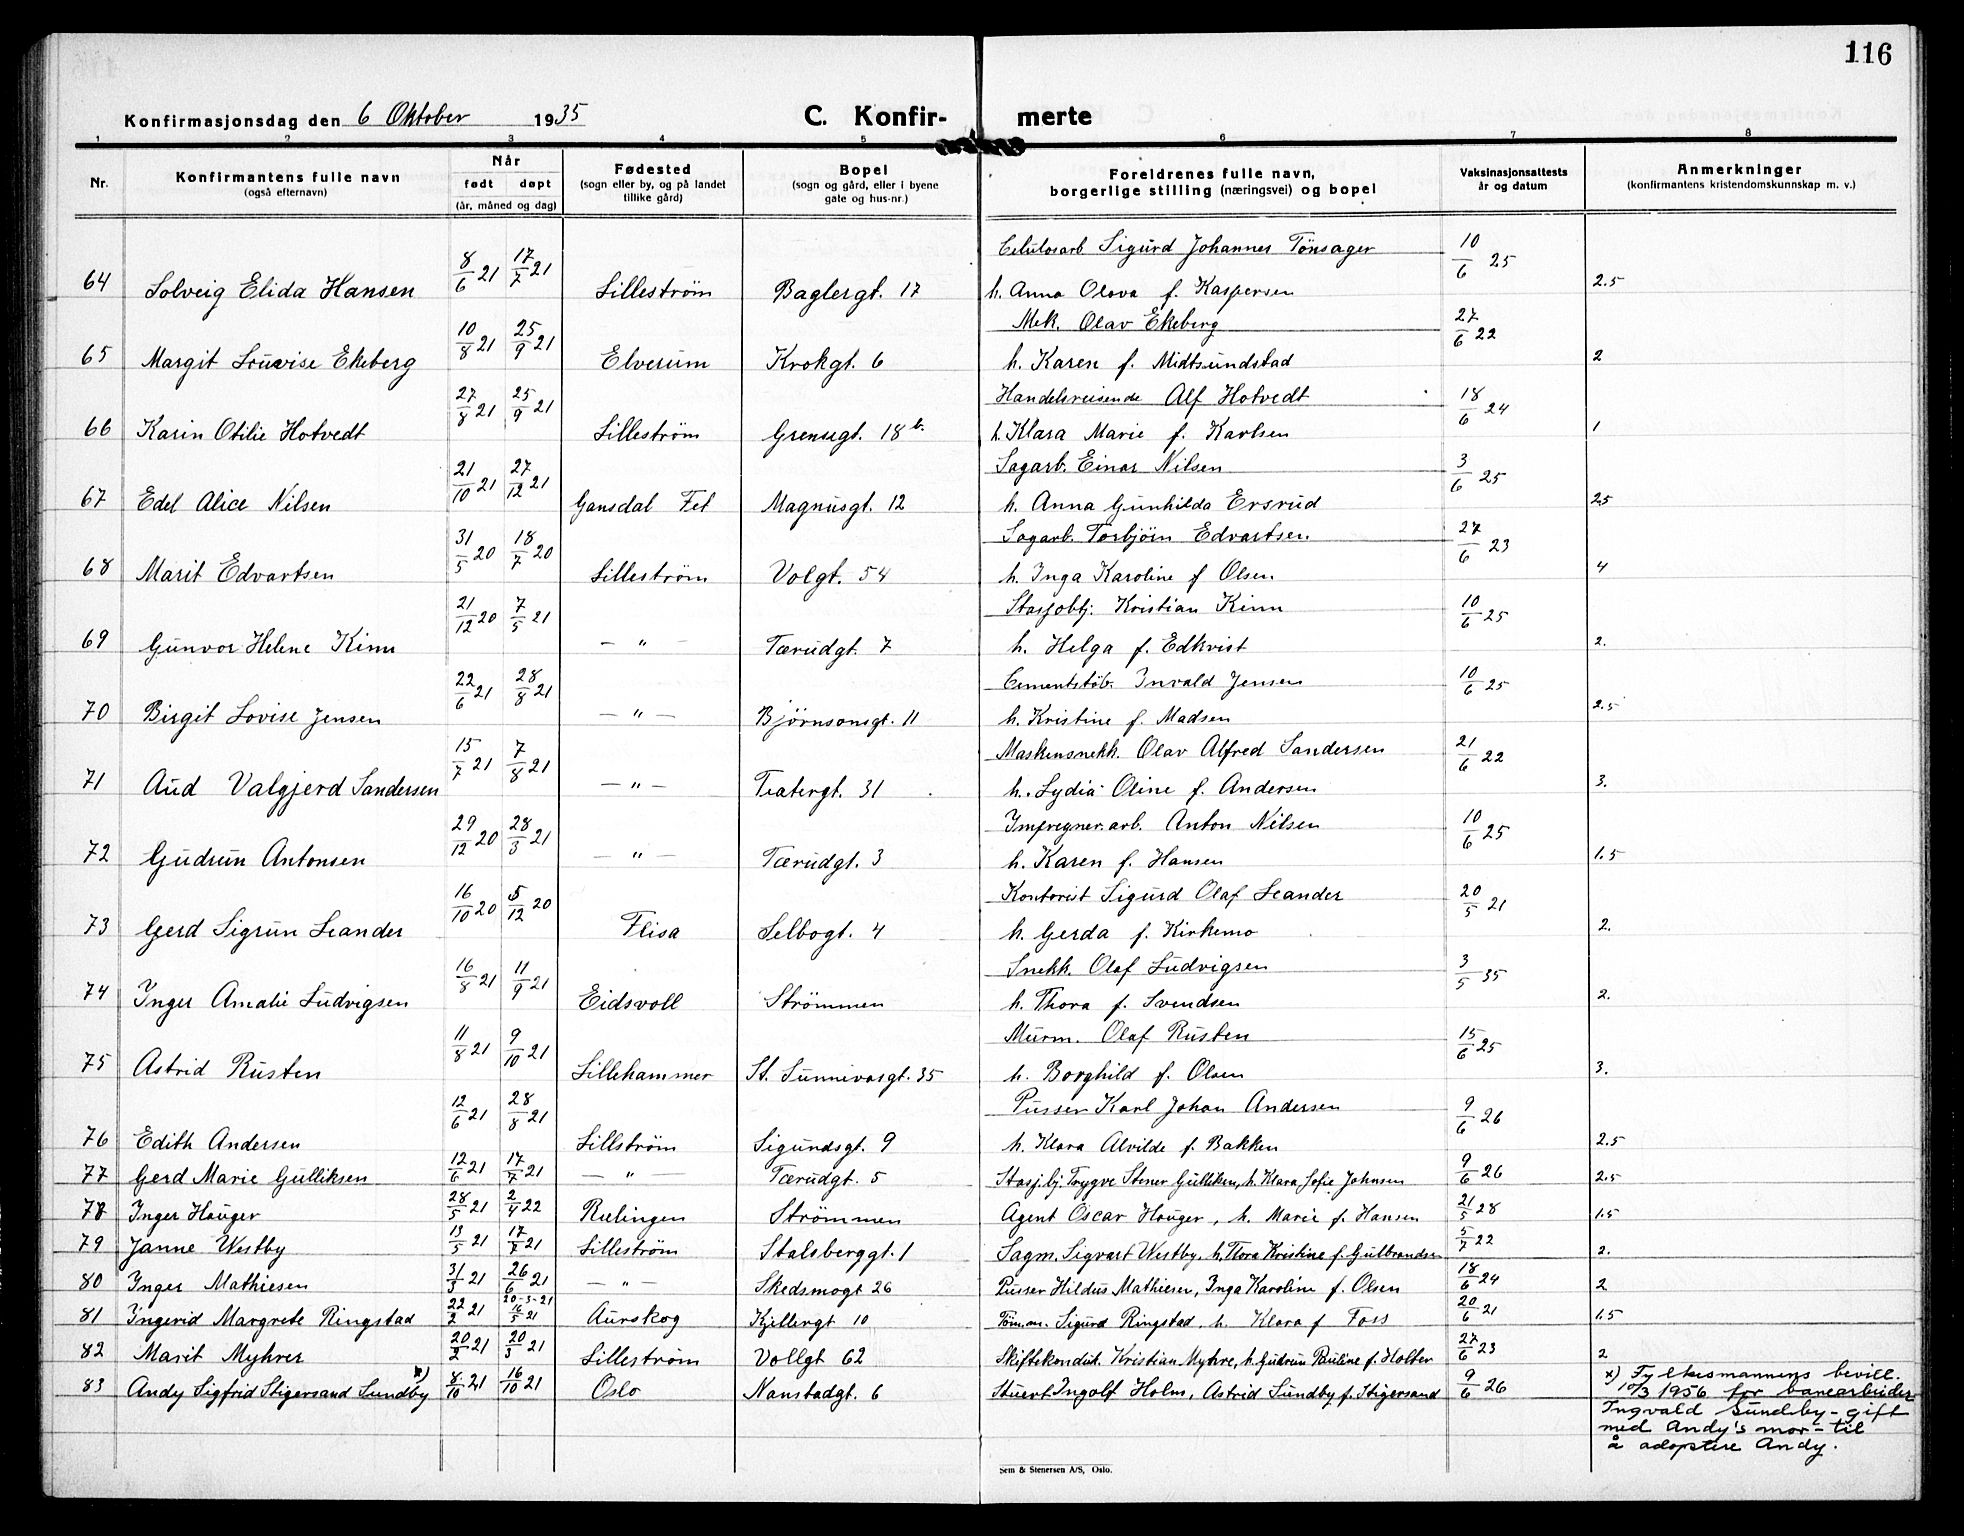 116
Konfirmasjonsdag den 6 Oktober 1935
C. Konfir- merte
1 2 3 4 5 6 7 8
Nr. Konfirmantens fulle navn (også efternavn) Når født døpt (år, måned og dag) Fødested (sogn eller by, og på landet tillike gård) Bopel (sogn og gård, eller i byene gate og hus-nr.) Foreldrenes fulle navn, borgerlige stilling (næringsvei) og bopel Vaksinasjonsattests år og datum Anmerkninger (konfirmantens kristendomskunnskap m. v.)
Celulosarb Sigurd Johannes Tönsager
64 Solveig Elida Hansen 8/6 21 17/7 21 Lilleström Baglergt. 17 h. Anna Olava f. Kaspersen 10/6 25 2.5
Mek. Olav Ekeberg
65 Margit Louvise Ekeberg 10/8 21 25/9 21 Elverum Krokgt. 6 h. Karen f. Midtsundstad 27/6 22 2
Handelsreisende Alf Hotvedt
66 Karin Otilie Hotvedt 27/8 21 25/9 21 Lilleström Grensegt. 18 b. h. Klara Marie f. Karlsen 18/6 24 1
Sagarb. Einar Nilsen
67 Edel Alice Nilsen 21/10 21 27/12 21 Gansdal Fet Magnusgt. 12 h. Anna Gunhilda Ersrud 3/6 25 2.5
Sagarb. Torbjörn Edvartsen
68 Marit Edvartsen 31/5 20 18/7 20 Lilleström Volgt. 54 h. Inga Karoline f Olsen 27/6 23 4
Stasjobtj. Kristian Kinn
69 Gunvor Helene Kinn 21/12 20 7/5 21 — " — Tærudgt. 7 h. Helga f. Edkvist 10/6 25 2.
Cementstöb. Invald Jensen
70 Birgit Lovise Jensen 22/6 21 28/8 21 — " — Bjørnsonsgt. 11 h. Kristine f. Madsen 10/6 25 2.5
Maskensnekk. Olav Alfred Sandersen
71 Aud Valgjerd Sandersen 15/7 21 7/8 21 — " — Teatergt. 31 h. Lydia Oline f. Andersen 21/6 22 3.
Impregner.arb. Anton Nilsen
72 Gudrun Antonsen 29/12 20 28/3 21 — " — Tærudgt. 3 h. Karen f. Hansen 10/6 25 1.5
Kontorist Sigurd Olaf Leander
73 Gerd Sigrun Leander 16/10 20 5/12 20 Flisa Selbogt. 4 h. Gerda f. Kirkemo 20/5 21 2.
Snekk. Olaf Ludvigsen
74 Inger Amalie Ludvigsen 16/8 21 11/9 21 Eidsvoll Strömmen h. Thora f. Svendsen 3/5 35 2.
Murm. Olaf Rusten
75 Astrid Rusten 11/8 21 9/10 21 Lillehammer St. Sunnivasgt. 35 h. Borghild f. Olsen 15/6 25 3.
Pusser Karl Johan Andersen
76 Edith Andersen 12/6 21 28/8 21 Lillström Sigurdsgt. 9 h. Klara Alvilde f. Bakken 9/6 26 2.5
77 Gerd Marie Gulliksen 12/6 21 17/7 21 — " — Tærudgt. 5 Stasj.bj. Trygve Stener Gulliken, h. Klara Sofie Johnsen 9/6 26 2.5
78 Inger Hauger 28/5 21 2/4 22 Rælingen Strömmen Agent Oscar Hauger, h. Marie f. Hansen 21/5 28 1.5
79 Janne Westby 13/5 21 17/7 21 Lilleström Stalsberggt. 1 Sagm. Sigvart Westby, h. Thora Kristine f. Gulbrandsen 5/7 22 2.
80 Inger Mathiesen 31/3 21 26/6 21 — " — Skedsmogt 26 Pusser Hildus Mathiesen, Inga Karoline f. Olsen 18/6 24 2
20-3-21
81 Ingerid Margrete Ringstad 22/2 21 16/5 21 Aurskog Kjellergt 10 Töm.m. Sigurd Ringstad, h. Klara f Foss 20/6 21 1.5
82 Marit Myhrer 20/2 21 20/3 21 Lilleström Vollgt 62 Skiftekondut. Kristian Myhre, h. Gudrun Pauline f. Holter 27/6 23 2
83 Andy Sigfrid Stigersand Sundby x) 8/10 21 16/10 21 Oslo Nanstadgt. 6 Stuert Ingolf Holm, Astrid Sundby f. Stigersand 9/6 26
x) Fylkesmannens bevill.
10/3 1956 for banearbeider
Ingvald Sundby - gift
med Andy's mor - til
å adoptere Andy.
Sem & Stenersen A/S, Oslo.